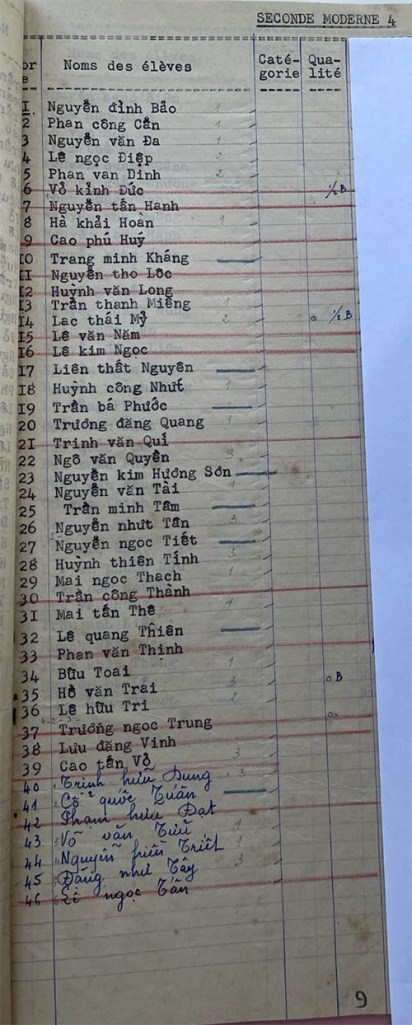 SECONDE MODERNE 4
or Noms des élèves Caté- Qua-
e gorie lité
1 Nguyễn đình Bảo 1
2 Phan công Cẩn 1
3 Nguyễn văn Đa 1
4 Lê ngọc Điệp 2
5 Phan van Dinh 2
6 Võ kỉnh Đức ½ B
7 Nguyễn tấn Hanh
8 Hà khải Hoàn 1
9 Cao phú Huý
10 Trang minh Kháng
11 Nguyễn tho Lôc
12 Huỳnh văn Long
13 Trần thanh Miêng 1
14 Lac thái Mỹ 2 o ½ B
15 Lê văn Năm
16 Lê kim Ngọc
17 Liên thất Nguyên
18 Huỳnh công Nhứt 1
19 Trần bá Phước
20 Trương đăng Quang 1
21 Trinh văn Quí
22 Ngô văn Quyền 3
23 Nguyễn kim Hương Sơn
24 Nguyễn văn Tài 1
25 Trần minh Tâm
26 Nguyễn nhưt Tấn 3
27 Nguyễn ngọc Tiết
28 Huỳnh thiên Tính 3
29 Mai ngọc Thạch 1
30 Trần công Thành
31 Mai tấn Thê 1
32 Lê quang Thiên
33 Phan văn Thịnh
34 Bửu Toai 1
35 Hồ văn Trai 3 o B
36 Lê hữu Tri 2
37 Trương ngọc Trung ox
38 Lưu đăng Vinh
39 Cao tấn Vỏ 3
40 Trịnh hữu Dung 3
41 Cổ quốc Tuấn
42 Phạm hữu Đạt
43 Võ văn Tửu 1
44 Nguyễn hiền Triết 1
45 Đặng như Tây 3
46 Lê ngọc Tấn
9